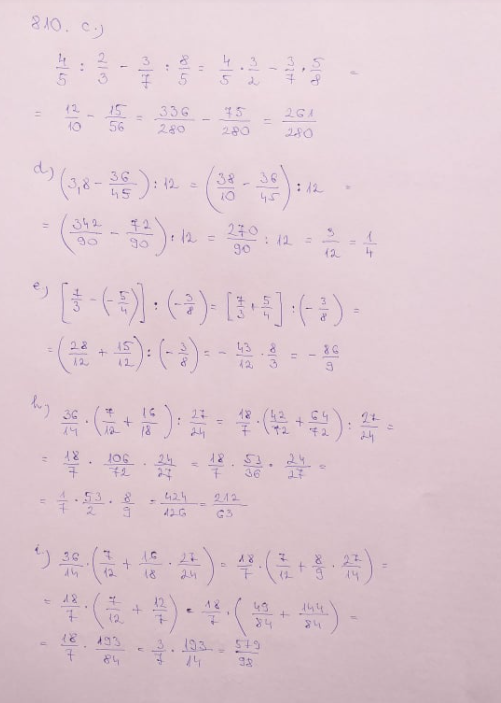 810. c.)
4/5 : 2/3 - 3/7 : 8/5 = 4/5 · 3/2 - 3/7 · 5/8 =
= 12/10 - 15/56 = 336/280 - 75/280 = 261/280
d) (3,8 - 36/45) : 12 = (38/10 - 36/45) : 12 =
= (342/90 - 72/90) : 12 = 270/90 : 12 = 3/12 = 1/4
e) [7/3 - (-5/4)] : (-3/8) = [7/3 + 5/4] : (-3/8) =
= (28/12 + 15/12) : (-3/8) = - 43/12 · 8/3 = - 86/9
h) 36/14 · (7/12 + 16/18) : 27/24 = 18/7 · (42/72 + 64/72) : 27/24 =
= 18/7 · 106/72 · 24/27 = 18/7 · 53/36 · 24/27 =
= 1/7 · 53/2 · 8/9 = 424/126 = 212/63
i.) 36/14 · (7/12 + 16/18 · 27/24) = 18/7 · (7/12 + 8/9 · 27/14) =
= 18/7 · (7/12 + 12/7) = 18/7 · (49/84 + 144/84) =
= 18/7 · 193/84 = 3/7 · 193/14 = 579/98